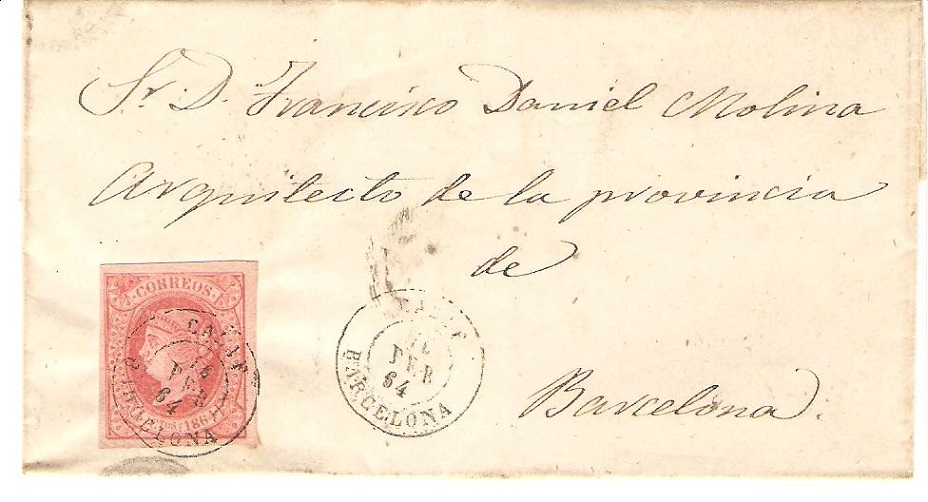 Sr. D. Francisco Daniel Molina
Arquitecto de la provincia
de
Barcelona.
CORREOS
1864
FEB
64
BARCELONA
FEB
64
BARCELONA